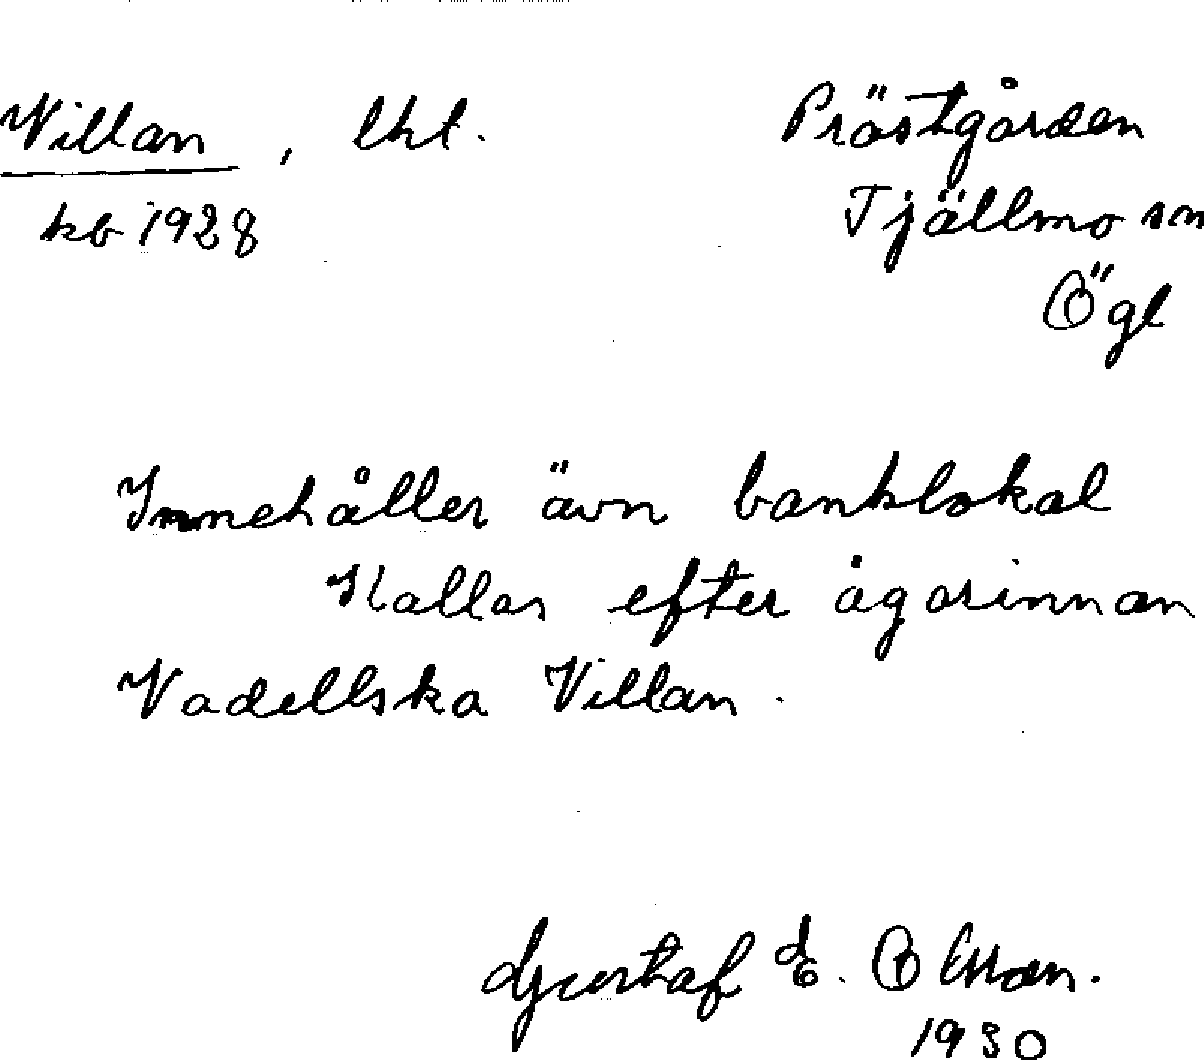 Villan, lht.
Prästgården
kb 1928
Tjällmo sn
Ögl
Innehåller ävn banklokal
Kallas efter ägarinnan
Vadellska Villan.
Gustaf E. Olsson.
1930